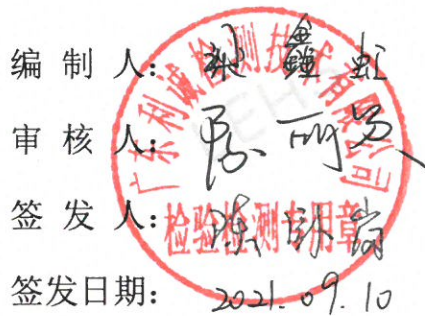 编 制 人: 梁鑫虹
审 核 人:
签 发 人: 陈
签发日期: 2021.09.10
广东利诚检测技术有限公司
检验检测专用章